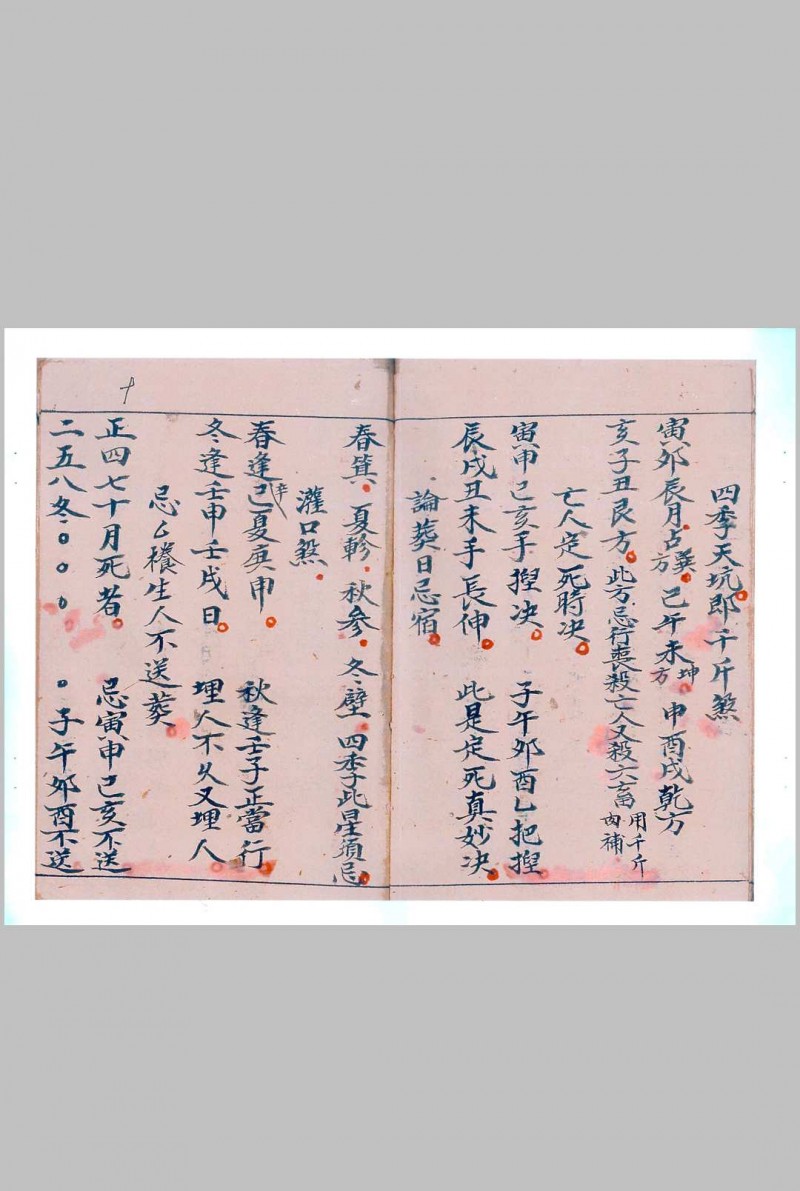 四季天坑郎千斤煞
寅卯辰月占巽方 巳午未坤方 申酉戌乾方
亥子丑艮方 此方忌行喪殺亡人又殺六畜 用千斤肉補
亡人定死時決
寅申巳亥手揑决 子午卯酉乚把揑
辰戌丑未手長伸 此是定死真妙决
論葬日忌宿
春箕 夏軫 秋參 冬壁 四季此星須忌
灌口煞
春逢己辛夏庚申 秋逢壬子正當行
冬逢壬申壬戌日 埋人不久又埋人
忌生人不送葬
正四七十月死者 忌寅申巳亥不送
二五八冬〇〇〇 〇子午卯酉不送